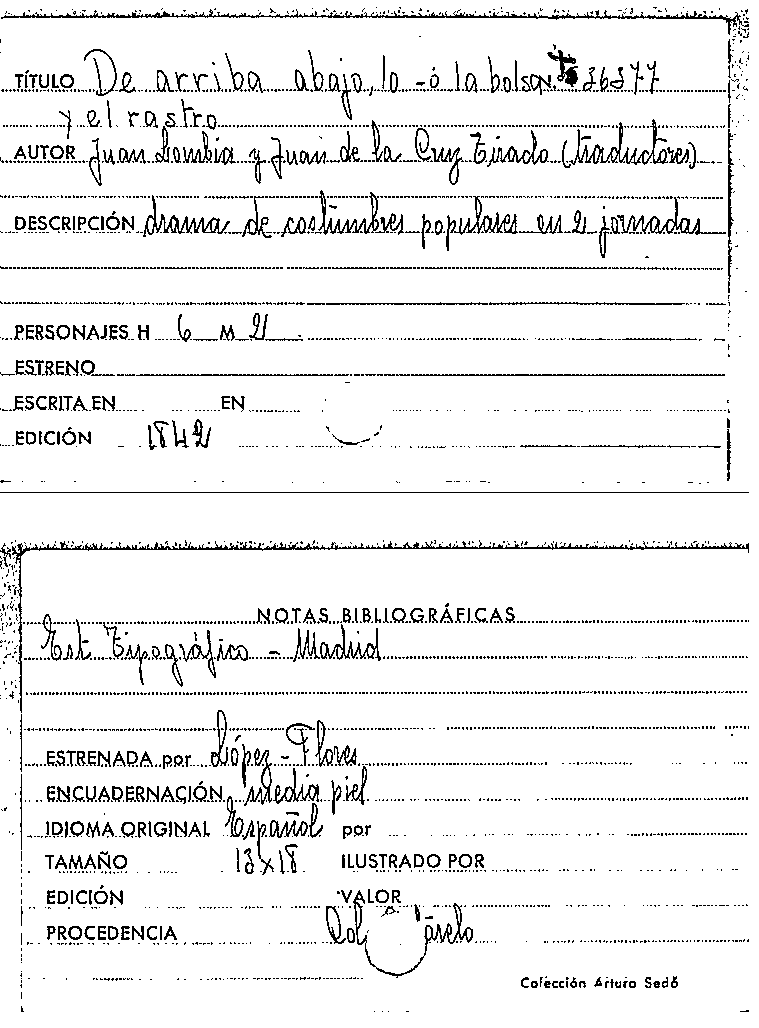 TÍTULO De arriba abajo, lo -ó la bolsa N.º 36377
y el rastro
AUTOR Juan Lombia y Juan de la Cruz Tirado (traductores)
DESCRIPCIÓN drama de costumbres populares en 2 jornadas
PERSONAJES H 6 M 2
ESTRENO
ESCRITA EN EN
EDICIÓN 1842
NOTAS BIBLIOGRÁFICAS
Est. Tipográfico - Madrid
ESTRENADA por López - Flores
ENCUADERNACIÓN media piel
IDIOMA ORIGINAL Español por
TAMAÑO 13x18 ILUSTRADO POR
EDICIÓN VALOR
PROCEDENCIA
Colección Arturo Sedó